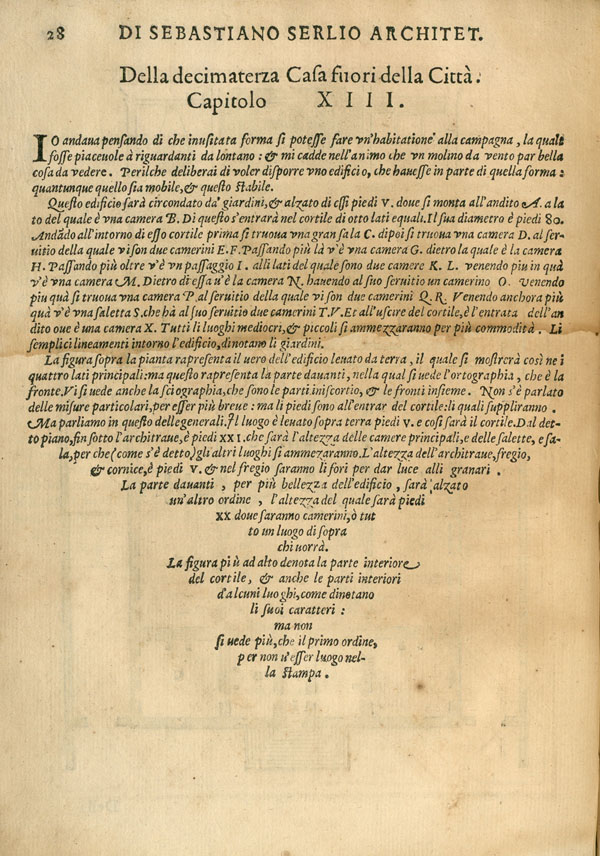 28 DI SEBASTIANO SERLIO ARCHITET.
Della decimaterza Casa fuori della Città.
Capitolo XIII.
IO andava pensando di che inusitata forma si potesse fare vn'habitatione alla campagna, la quale
fosse piaceuole à riguardanti da lontano: & mi cadde nell'animo che vn molino da vento par bella
cosa da vedere. Perilche deliberai di voler disporre vno edificio, che hauesse in parte di quella forma:
quantunque quello sia mobile, & questo stabile.
Questo edificio sarà circondato da' giardini, & alzato di essi piedi V. doue si monta all'andito A. a la
to del quale è vna camera B. Di questo s'entrarà nel cortile di otto lati equali. Il suo diametro è piedi 80.
Andãdo all'intorno di esso cortile prima si truoua vna gran sala C. dipoi si truoua vna camera D. al ser-
uitio della quale vi son due camerini E. F. Passando più là v'è vna camera G. dietro la quale è la camera
H. Passando più oltre v'è vn passaggio I. alli lati del quale sono due camere K. L. venendo piu in quà
v'è vna camera M. Dietro di essa u'è la camera N. hauendo al suo seruitio un camerino O. venendo
piu quà si truoua vna camera P. al seruitio della quale vi son due camerini Q. R. Venendo anchora più
quà v'è vna saletta S. che hà al suo seruitio due camerini T. V. Et all'uscire del cortile, è l'entrata dell'an
dito oue è una camera X. Tutti li luoghi mediocri, & piccoli si ammezzaranno per più commodità. Li
semplici lineamenti intorno l'edificio, dinotano li giardini.
La figura sopra la pianta rapresenta il uero dell'edificio leuato da terra, il quale si mostrerà così ne i
quattro lati principali: ma questo rapresenta la parte dauanti, nella qual si uede l'ortographia, che è la
fronte. Vi si uede anche la sciographia, che sono le parti in iscortio, & le fronti insieme. Non s'è parlato
delle misure particolari, per esser più breue: ma li piedi sono all'entrar del cortile: li quali suppliranno.
Ma parliamo in questo delle generali. Il luogo è leuato sopra terra piedi V. e cosi sarà il cortile. Dal det-
to piano, fin sotto l'architraue, è piedi XXI. che sarà l'altezza delle camere principali, e delle salette, e sa-
la, per che (come s'è detto) gli altri luoghi si ammezaranno. L'altezza dell'architraue, fregio,
& cornice, è piedi V. & nel fregio saranno li fori per dar luce alli granari.
La parte dauanti, per più bellezza dell'edificio, sarà alzato
un'altro ordine, l'altezza del quale sarà piedi
XX doue saranno camerini, ò tut
to un luogo di sopra
chi uorrà.
La figura più ad alto denota la parte interiore
del cortile, & anche le parti interiori
d'alcuni luoghi, come dinotano
li suoi caratteri:
ma non
si uede più, che il primo ordine,
per non u'esser luogo nel-
la stampa.